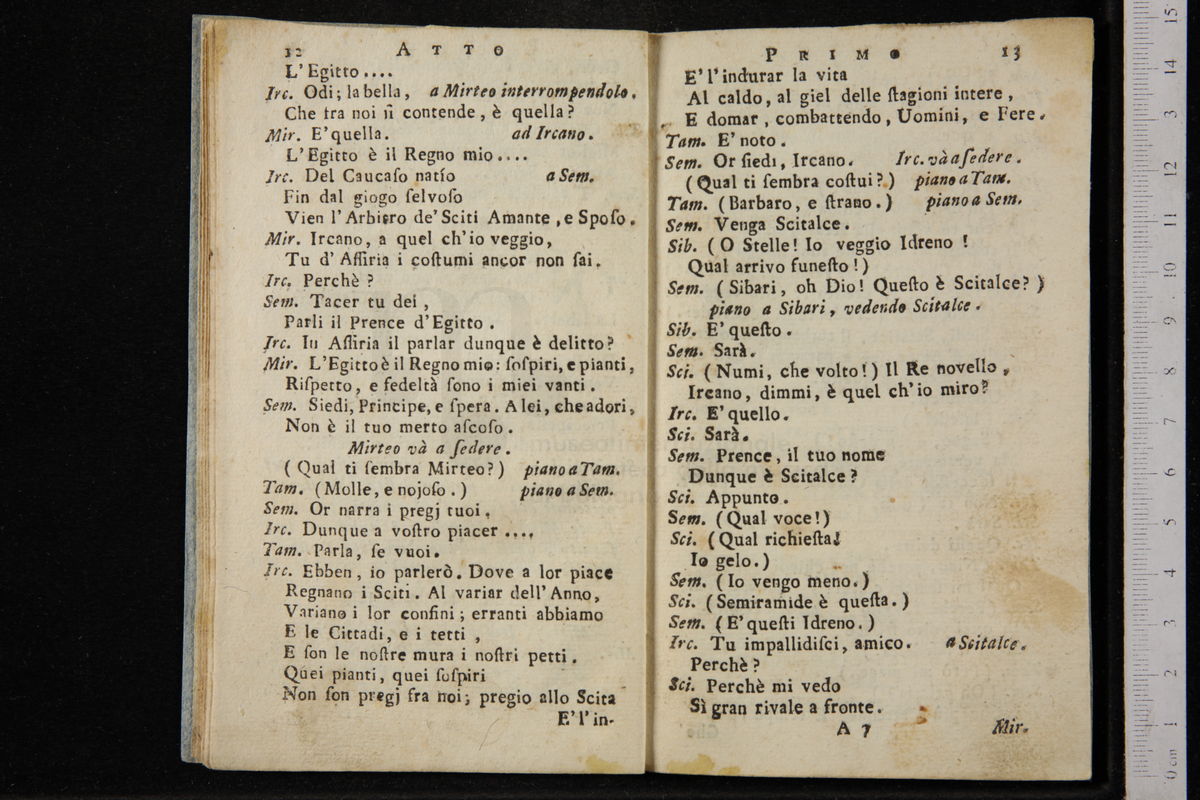 12 ATTO
L'Egitto....
Irc. Odi; la bella, a Mirteo interrompendolo.
Che fra noi ſi contende, è quella?
Mir. E' quella. ad Ircano.
L'Egitto è il Regno mio....
Irc. Del Caucaſo natío a Sem.
Fin dal giogo ſelvoſo
Vien l'Arbitro de' Sciti Amante, e Spoſo.
Mir. Ircano, a quel ch'io veggio,
Tu d'Aſſiria i coſtumi ancor non ſai.
Irc. Perchè?
Sem. Tacer tu dei,
Parli il Prence d'Egitto.
Irc. In Aſſiria il parlar dunque è delitto?
Mir. L'Egitto è il Regno mio: ſoſpiri, e pianti,
Riſpetto, e fedeltà ſono i miei vanti.
Sem. Siedi, Principe, e ſpera. A lei, che adori,
Non è il tuo merto aſcoſo.
Mirteo và a ſedere.
(Qual ti ſembra Mirteo?) piano a Tam.
Tam. (Molle, e nojoſo.) piano a Sem.
Sem. Or narra i pregj tuoi.
Irc. Dunque a voſtro piacer....
Tam. Parla, ſe vuoi.
Irc. Ebben, io parlerò. Dove a lor piace
Regnano i Sciti. Al variar dell'Anno,
Variano i lor confini; erranti abbiamo
E le Cittadi, e i tetti,
E ſon le noſtre mura i noſtri petti.
Quei pianti, quei ſoſpiri
Non ſon pregj fra noi; pregio allo Scita
E' l'in-
PRIMO 13
E' l'indurar la vita
Al caldo, al giel delle ſtagioni intere,
E domar, combattendo, Uomini, e Fere.
Tam. E' noto.
Sem. Or ſiedi, Ircano. Irc. và a ſedere.
(Qual ti ſembra coſtui?) piano a Tam.
Tam. (Barbaro, e ſtrano.) piano a Sem.
Sem. Venga Scitalce.
Sib. (O Stelle! Io veggio Idreno!
Qual arrivo funeſto!)
Sem. (Sibari, oh Dio! Queſto è Scitalce?)
piano a Sibari, vedendo Scitalce.
Sib. E' queſto.
Sem. Sarà.
Sci. (Numi, che volto!) Il Re novello,
Ircano, dimmi, è quel ch'io miro?
Irc. E' quello.
Sci. Sarà.
Sem. Prence, il tuo nome
Dunque è Scitalce?
Sci. Appunto.
Sem. (Qual voce!)
Sci. (Qual richieſta!
Io gelo.)
Sem. (Io vengo meno.)
Sci. (Semiramide è queſta.)
Sem. (E' queſti Idreno.)
Irc. Tu impallidiſci, amico. a Scitalce.
Perchè?
Sci. Perchè mi vedo
Sì gran rivale a fronte.
A 7 Mir.
0 cm 1 2 3 4 5 6 7 8 9 10 11 12 13 14 15